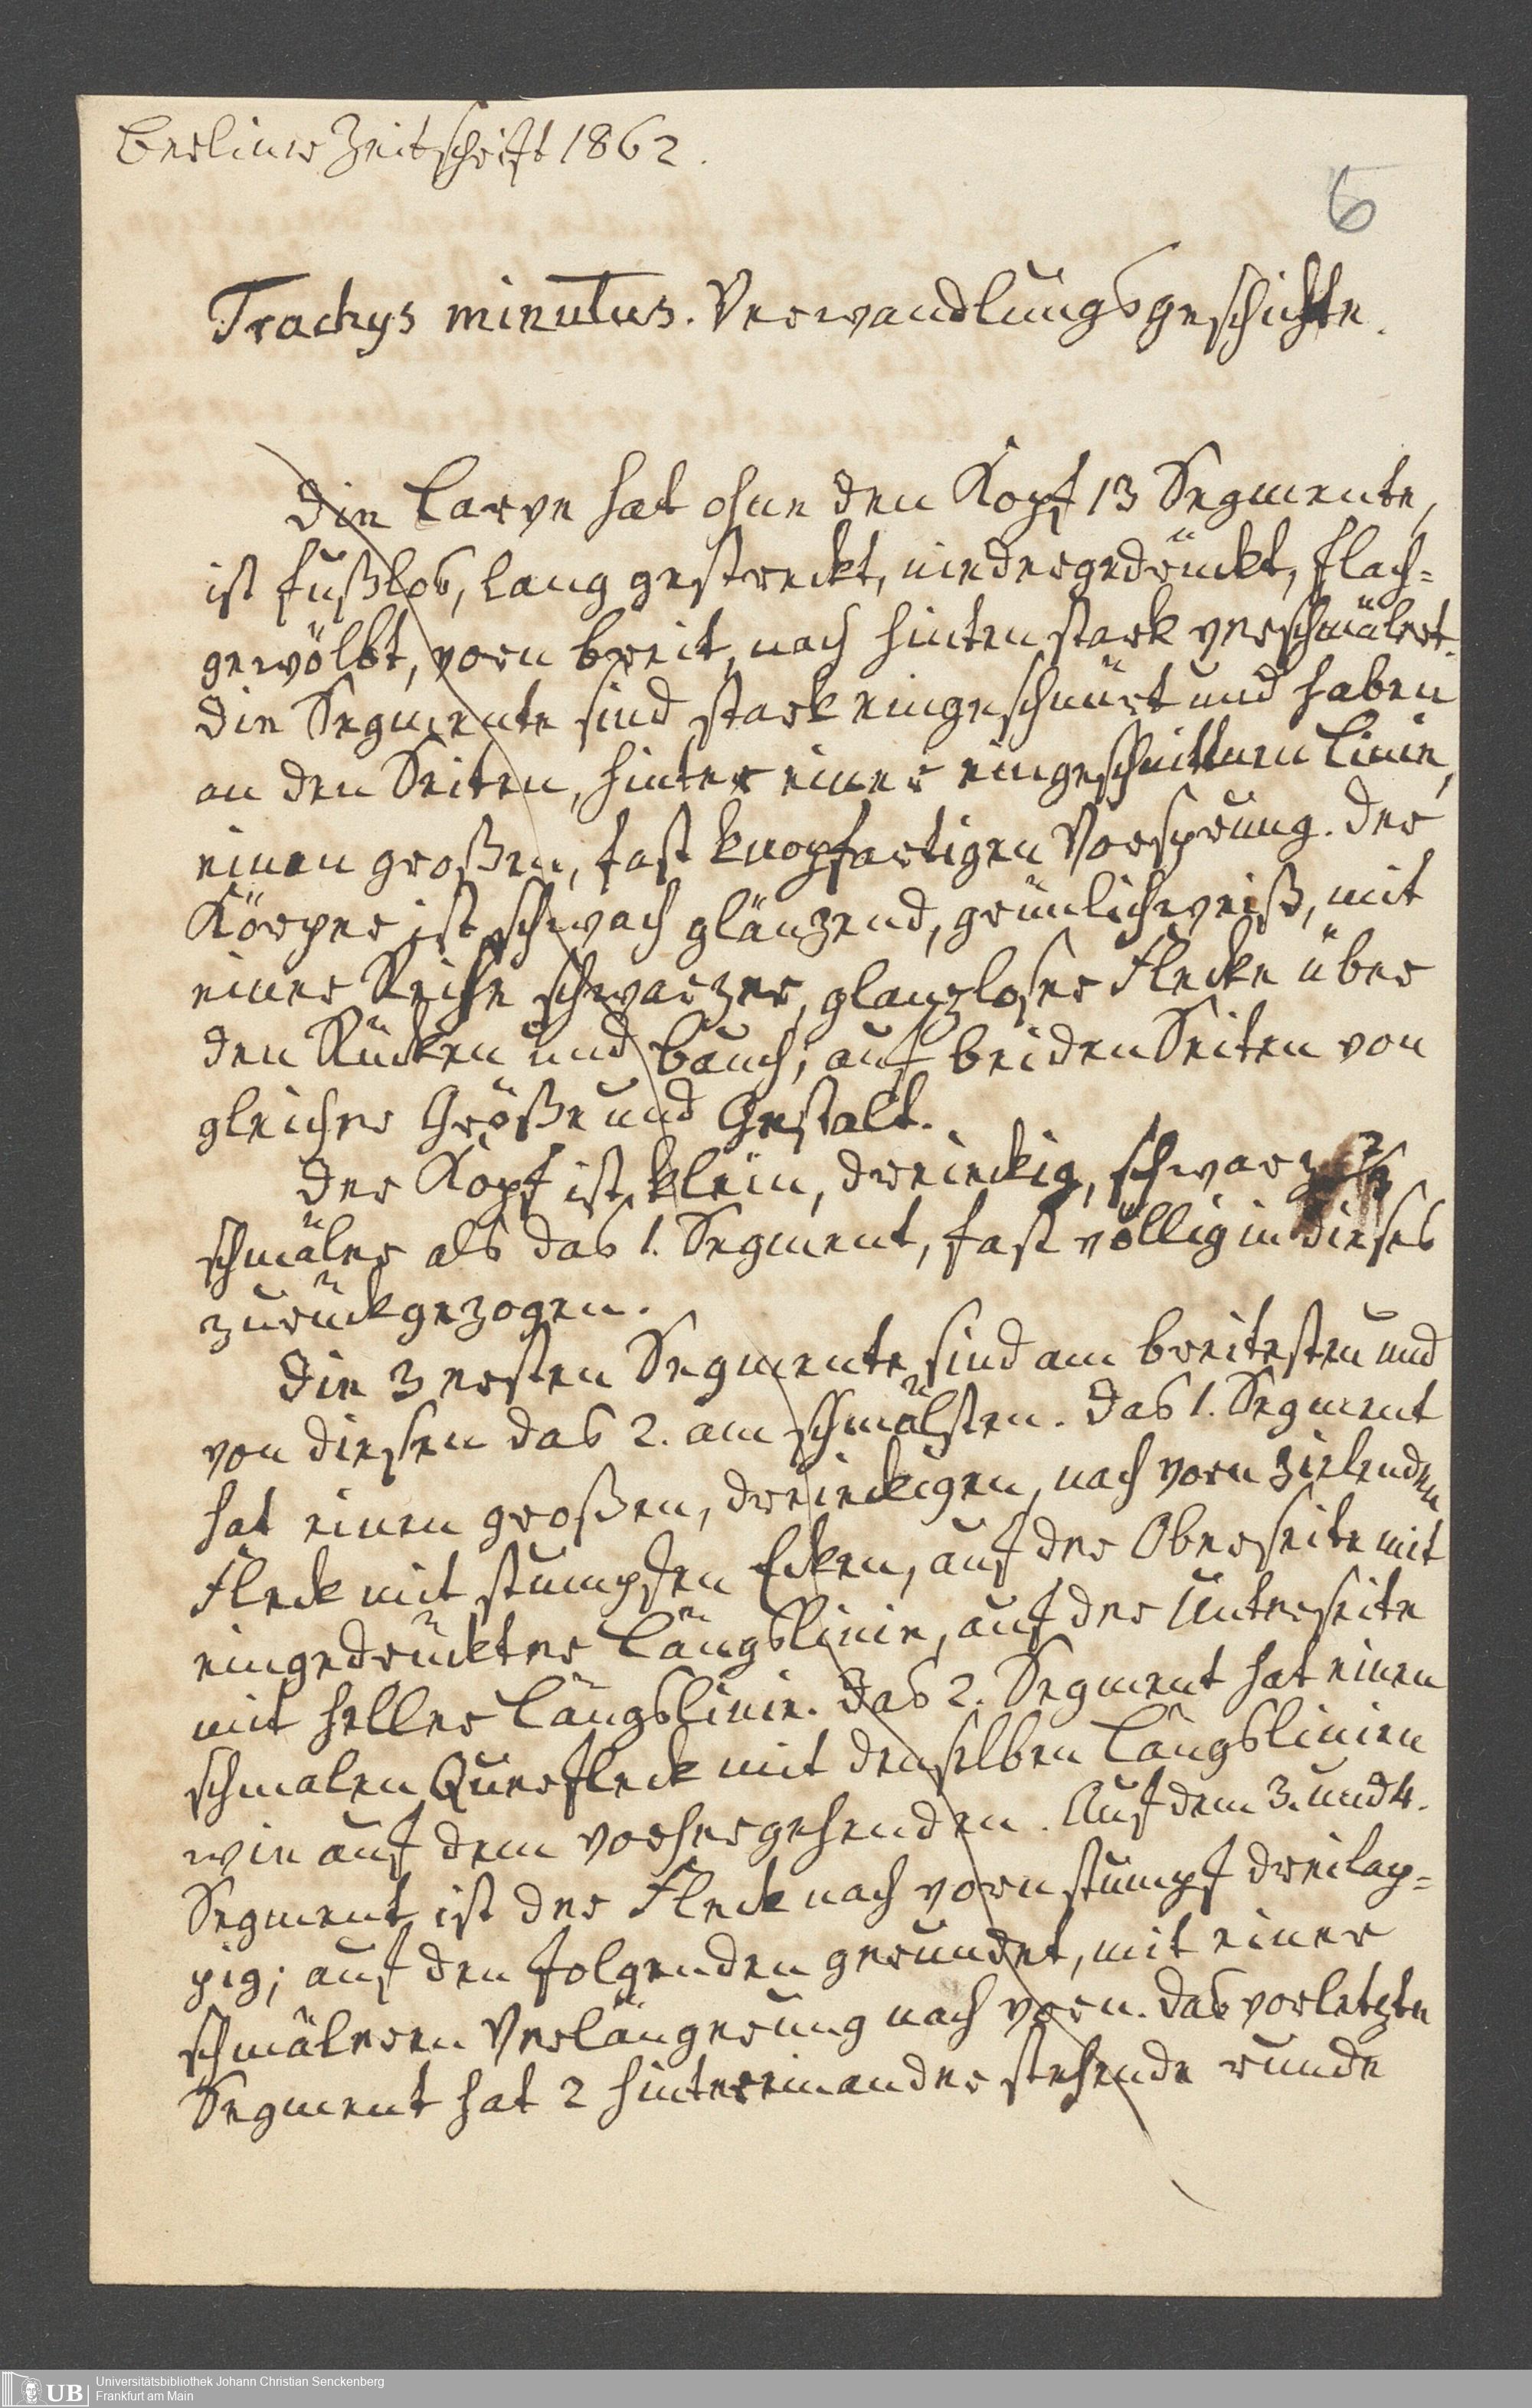 Berliner Zeitschrift 1862.
6
Trachys minutus. Verwandlungsgeschichte.
Die Larve hat ohne den Kopf 13 Segmente,
ist fußlos, lang gestreckt, niedergedrückt, flach-
gewölbt, vorn breit, nach hinten stark verschmälert.
Die Segmente sind stark eingeschnürt und haben
an den Seiten, hinter einer eingeschnittnen Linie,
einen großen, fast knopfartigen Vorsprung. Der
Körper ist schwach glänzend, grünlichweiß, mit
einer Reihe schwarzer, glanzloser Flecke über
den Rücken und Bauch; auf beiden Seiten von
gleicher Größe und Gestalt.
Der Kopf ist klein, dreieckig, schwarz,
schmäler als das 1. Segment, fast völlig in dieses
zurückgezogen.
Die 3 ersten Segmente sind am breitesten und
von diesen das 2. am schmälsten. Das 1. Segment
hat einen großen, dreieckigen, nach vorn zielenden
Fleck mit stumpfen Ecken, auf der Oberseite mit
eingedrückter Längslinie, auf der Unterseite
mit heller Längslinie. Das 2. Segment hat einen
schmalen Querfleck mit denselben Längslinien
wie auf dem vorhergehenden. Auf dem 3. und 4.
Segment ist der Fleck nach vorn stumpf dreilap-
pig; auf den folgenden gerundet, mit einer
schmäleren Verlängerung nach vorn. Das vorletzte
Segment hat 2 hintereinander stehende runde
UB
Universitätsbibliothek Johann Christian Senckenberg
Frankfurt am Main